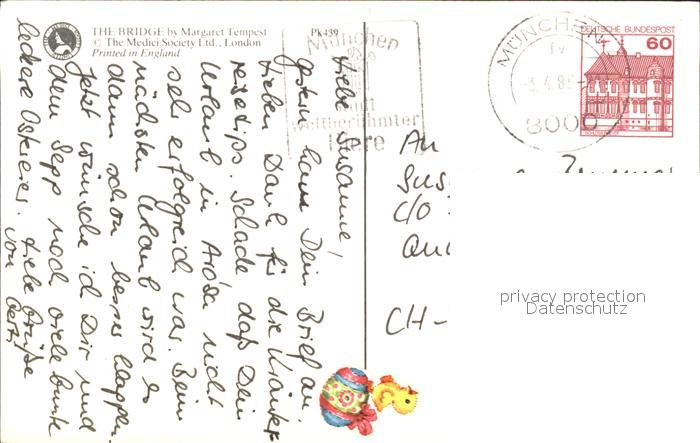 THE BRIDGE by Margaret Tempest
© The Medici Society Ltd., London
Printed in England
Pk439
München
Stadt
weltberühmter
Biere
MÜNCHEN
fv
8000
DEUTSCHE BUNDESPOST
60
Liebe Susanne!
gestern kam Dein Brief an.
Lieben Dank für die Kräuter
rezeptips. Schade daß Dein
Urlaub in Arosa nicht
sehr erfolgreich war. Beim
nächsten Urlaub wird es
dann schon besser klappen.
Jetzt wünsche ich Dir und
dem Sepp noch viele bunte
leckere Ostereier. Liebe Grüße
von
An
c/o
CH-
privacy protection
Datenschutz